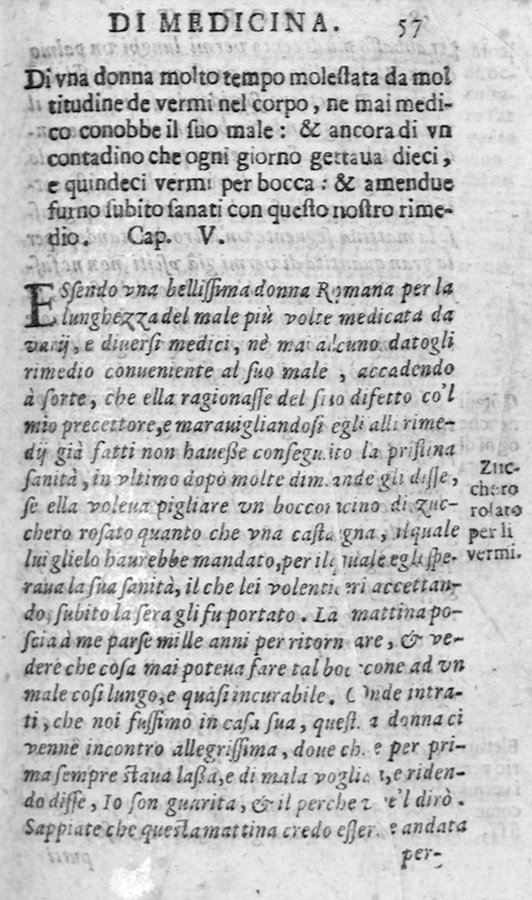 DI MEDICINA. 57
Di vna donna molto tempo molestata da mol
titudine de vermi nel corpo, ne mai medi-
co conobbe il suo male: & ancora di vn
contadino che ogni giorno gettaua dieci,
e quindeci vermi per bocca: & amendue
furno subito sanati con questo nostro rime-
dio. Cap. V.
ESsendo vna bellissima donna Romana per la
lunghezza del male più volte medicata da
varij, e diuersi medici, nè mai alcuno datogli
rimedio conueniente al suo male, accadendo
à sorte, che ella ragionasse del suo difetto co'l
mio precettore, e marauigliandosi egli alli rime-
dij già fatti non hauesse conseguito la pristina
sanità, in vltimo dopò molte dimande gli disse,
se ella voleua pigliare un bocconcino di zuc-
chero rosato quanto che vna castagna, ilquale
lui glielo haurebbe mandato, per ilquale egli spe-
raua la sua sanità, il che lei volentieri accettan-
do, subito la sera gli fu portato. La mattina po-
scia à me parse mille anni per ritornare, & ve-
dere che cosa mai poteua fare tal boccone ad vn
male cosi lungo, e quasi incurabile. Onde intra-
ti, che noi fussimo in casa sua, questa donna ci
venne incontro allegrissima, doue che per pri-
ma sempre staua lassa, e di mala voglia, e riden-
do disse, Io son guarita, & il perche ve'l dirò.
Sappiate che questa mattina credo essere andata
per-
Zuc-
chero
rosato
per li
vermi.